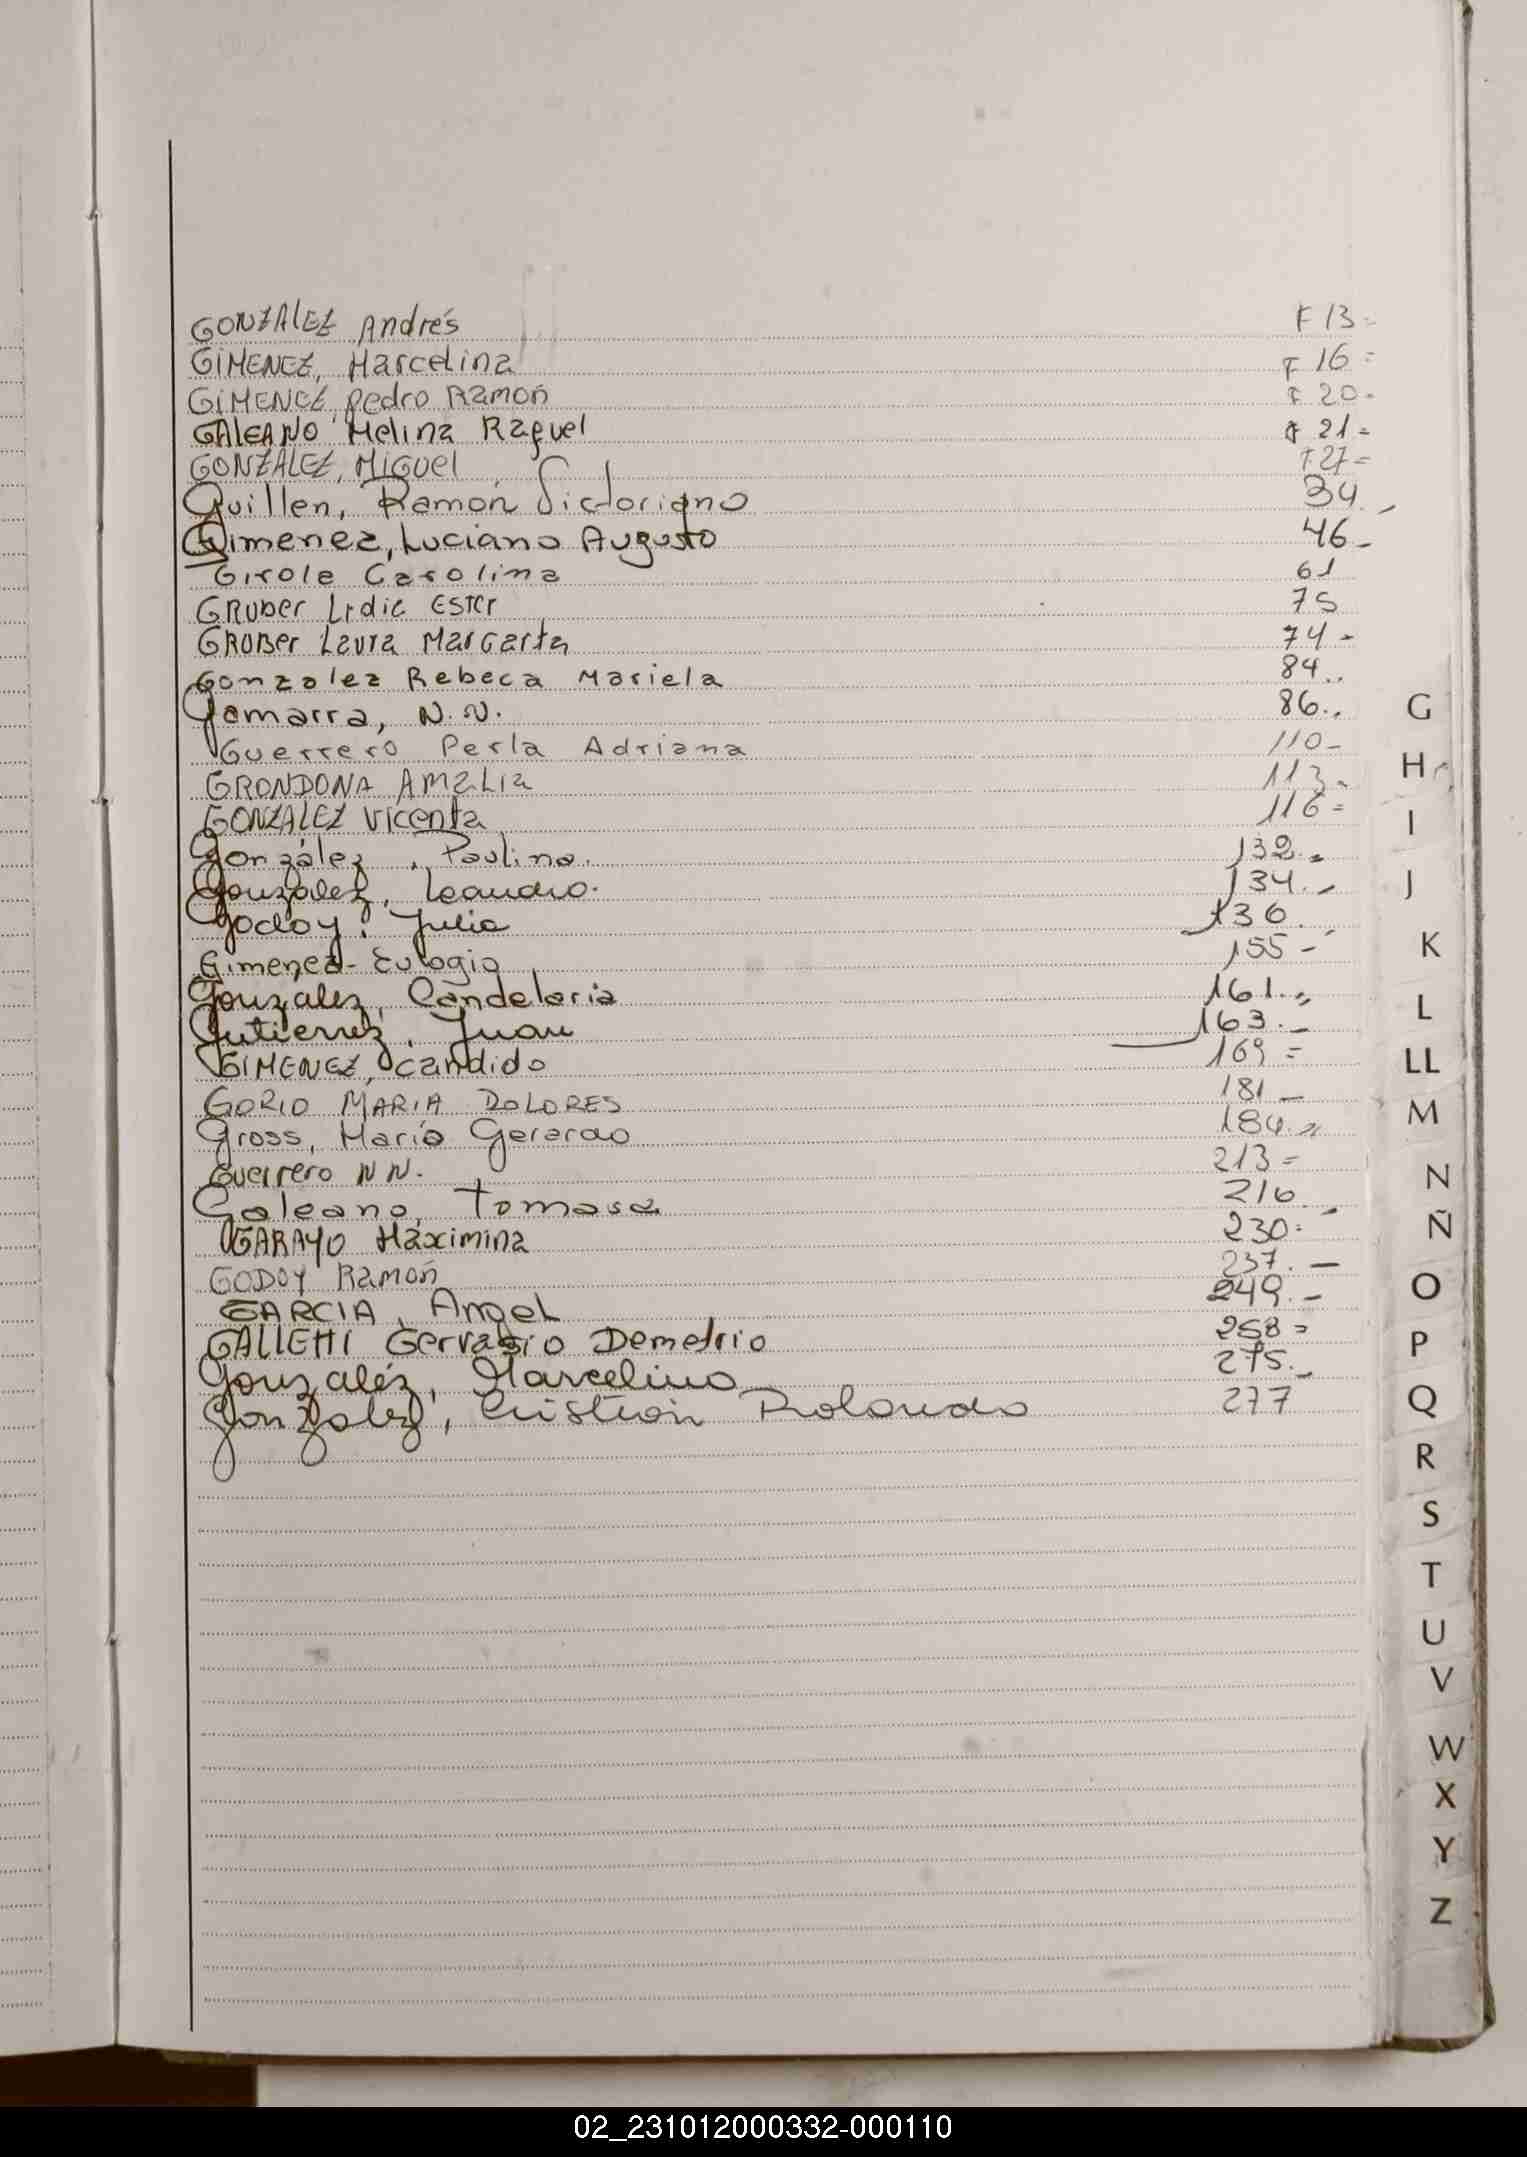 GONZALEZ Andrés F 13=
GIMENEZ, Marcelina F 16=
GIMENEZ Pedro Ramón F 20=
GALEANO Melina Raquel F 21=
GONZALEZ, MIGUEl F 27=
Guillen, Ramón Victoriano 34.-
Gimenez, Luciano Augusto 46-
Girole Carolina 61
GRUBER Lidie ESTER 75
GRUBer Laura Margarta 74-
Gonzalez Rebeca Mariela 84..
Gamarra, N.N. 86.,
Guerrero Perla Adriana 110-
GRONDONA AMALIA 113-
GONZALEZ Vicenta 116=
González, Paulino. 132.-
González, Leandro. 134.-
Godoy, Julio 136.-
Gimenez- Eulogio 155-
González, Candelaria 161.=
Gutierrez, Juan 163.-
GIMENEZ, Candido 169=
GORIO MARIA DOLORES 181-
Gross, Mario Gerardo 184.=
Guerrero NN. 213=
Galeano, Tomasa 216.-
GARAYO Maximina 230=
GODOY Ramón 237.-
GARCIA, Angel 249.-
GALLEHI Gervasio Demetrio 258=
González, Marcelino 275.-
González, Cristian Rolando 277
G
H
I
J
K
L
LL
M
N
Ñ
O
P
Q
R
S
T
U
V
W
X
Y
Z
02_231012000332-000110